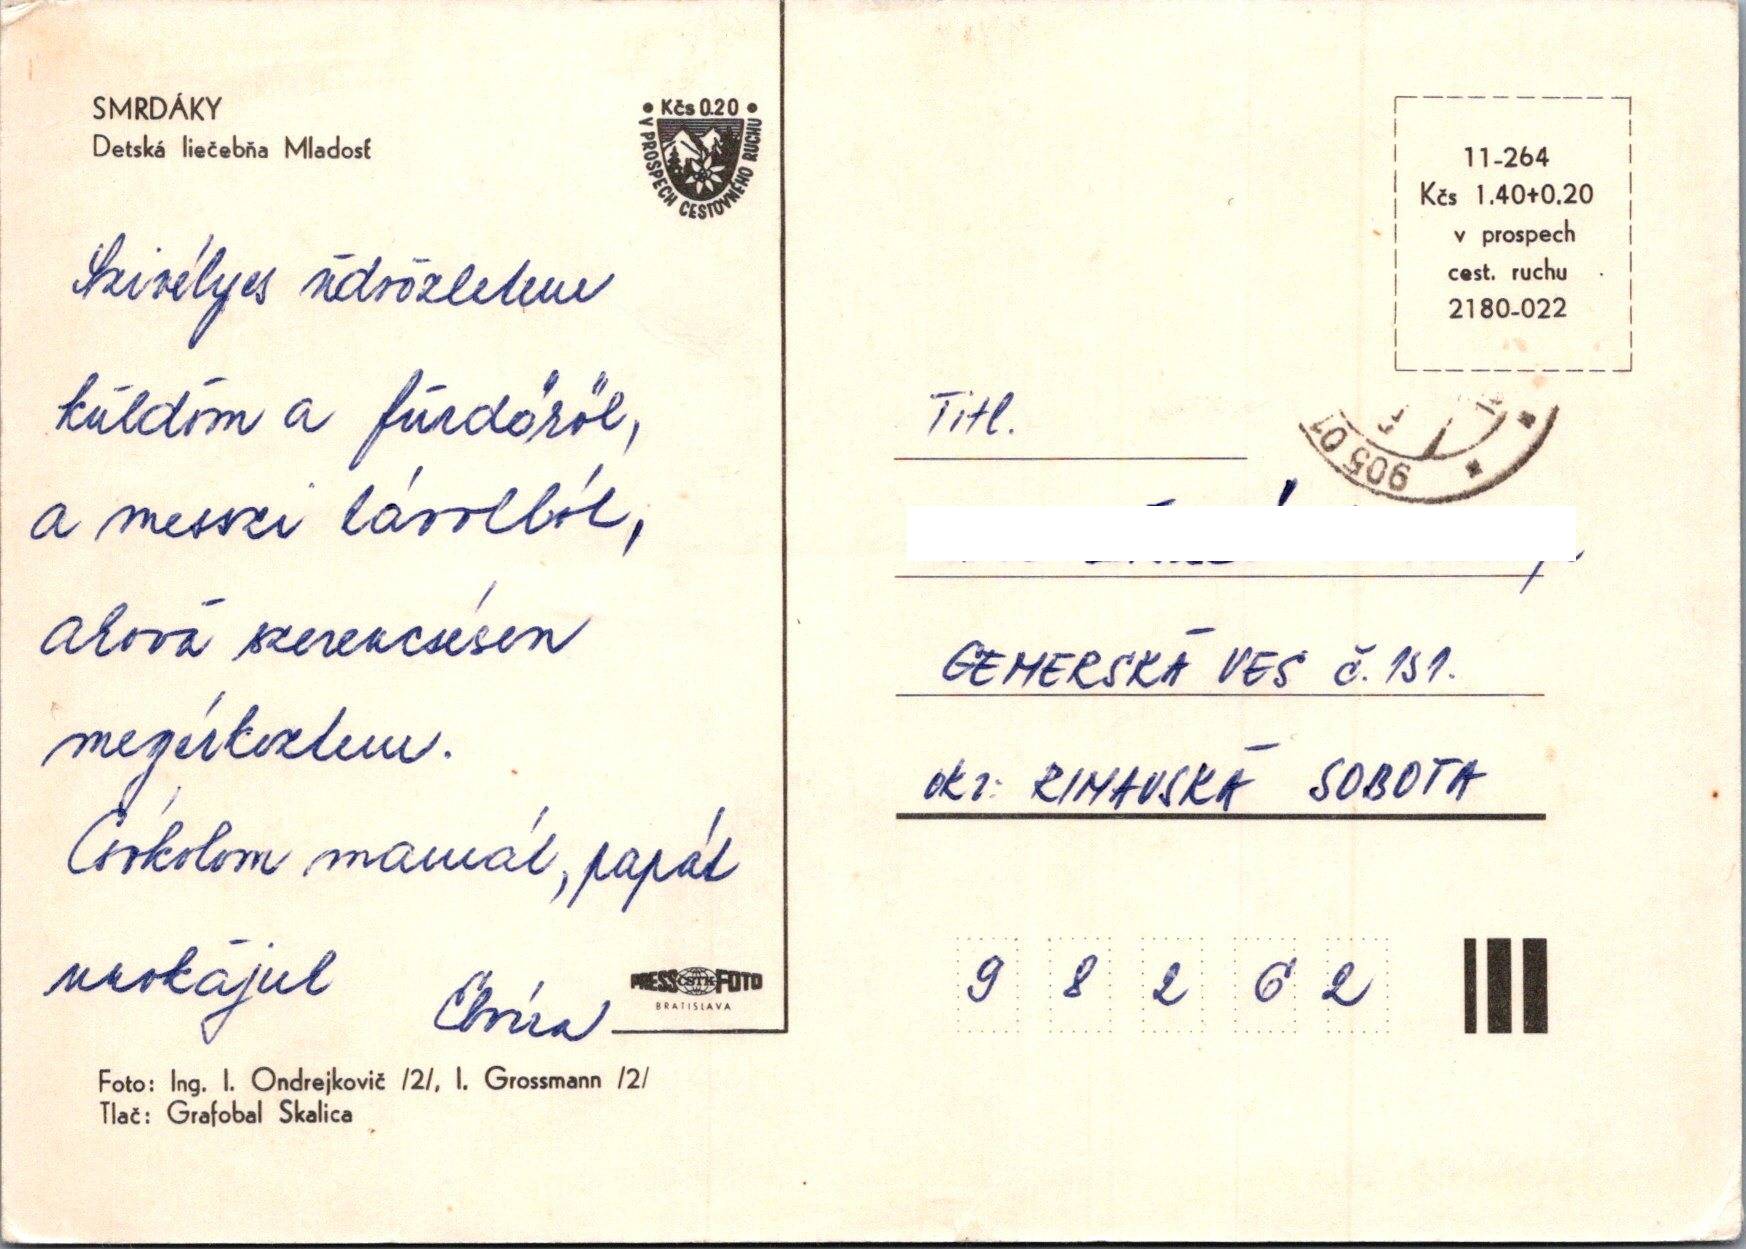 SMRDÁKY
Detská liečebňa Mladosť
• Kčs 0.20 •
V PROSPECH CESTOVNÉHO RUCHU
Szivélyes üdvözletem
küldöm a fürdőről,
a messzi távolból,
ahová szerencsésen
megérkeztem.
Csókolom mamát, papát
unokájul
Elvíra
PRESS ČSTK FOTO
BRATISLAVA
Foto: Ing. I. Ondrejkovič /2/, I. Grossmann /2/
Tlač: Grafobal Skalica
11-264
Kčs 1.40+0.20
v prospech
cest. ruchu
2180-022
905 01
Titl.
GEMERSKÁ VES č. 151.
okr: RIMAVSKÁ SOBOTA
98262